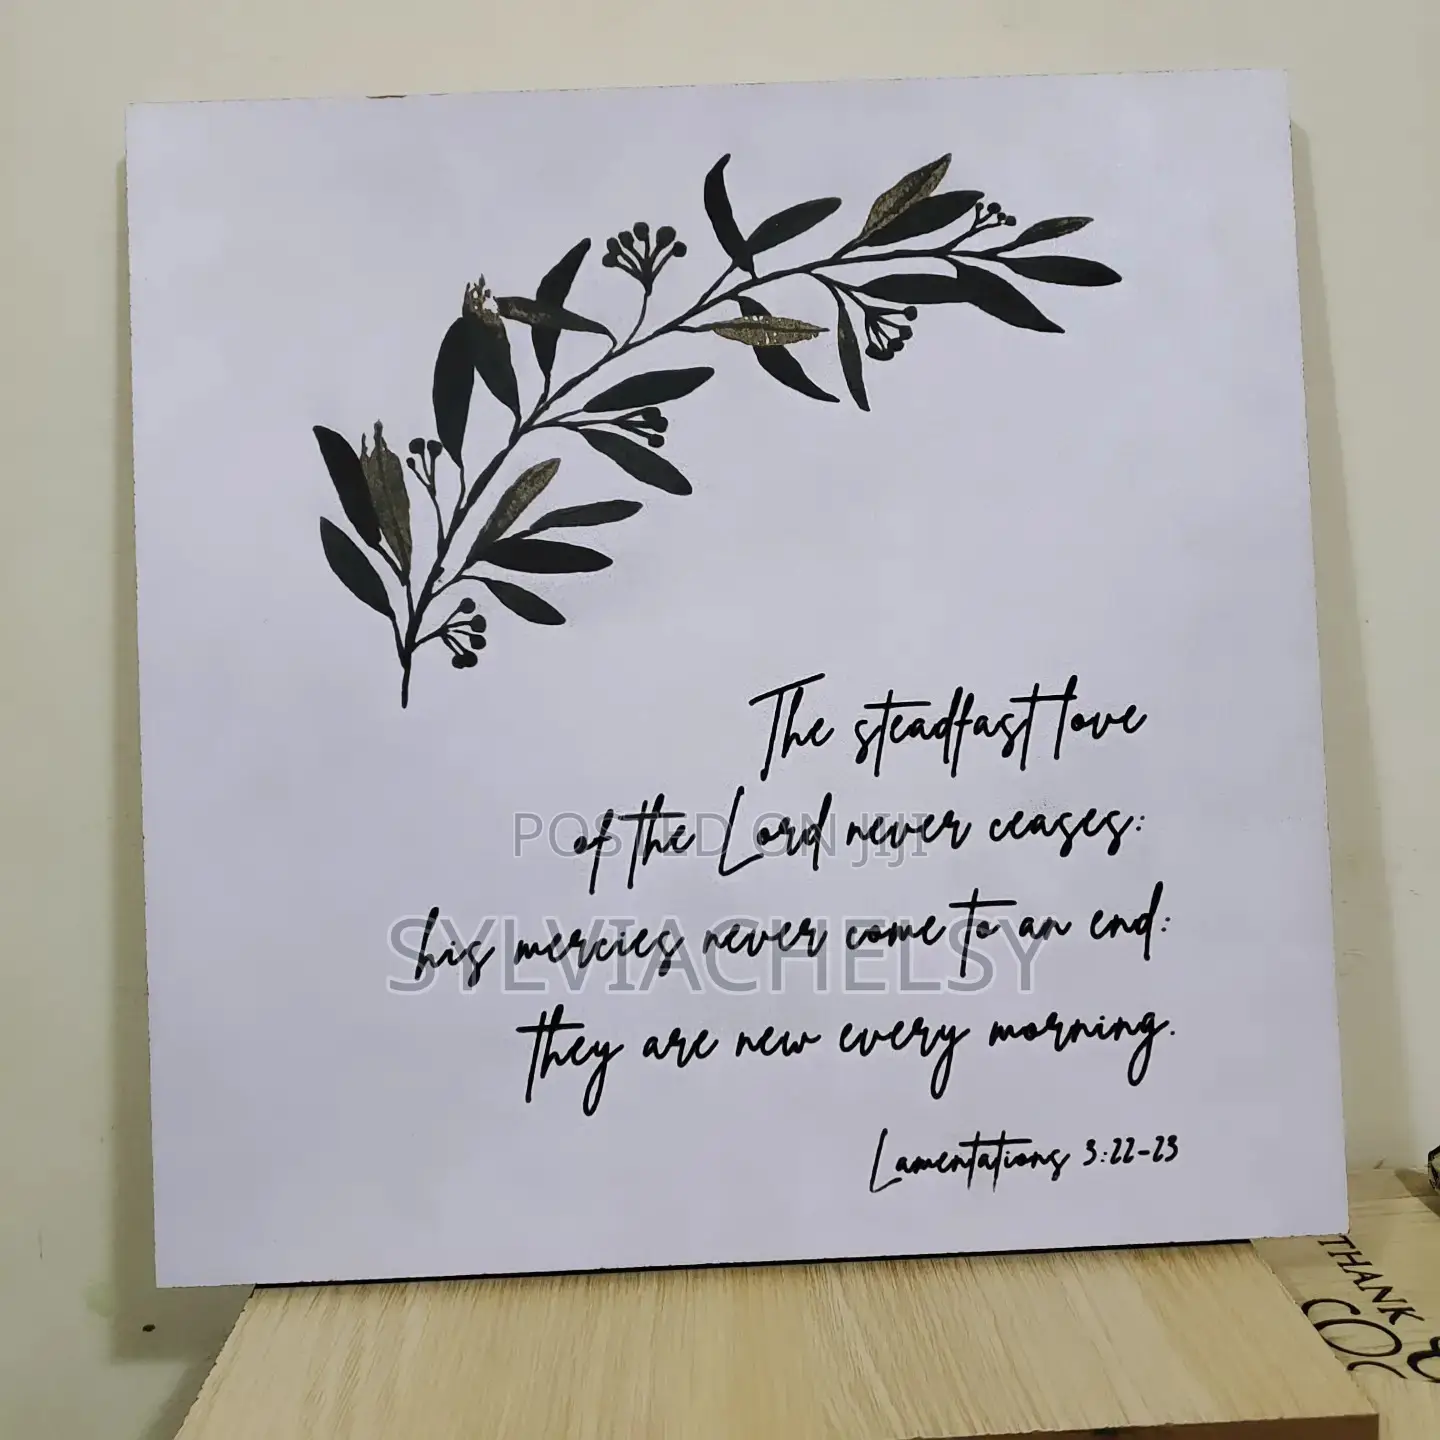 The steadfast love
of the Lord never ceases:
POSTED ON JIJI
his mercies never come to an end:
SYLVIACHELSY
they are new every morning.
Lamentations 3:22-23
THANK